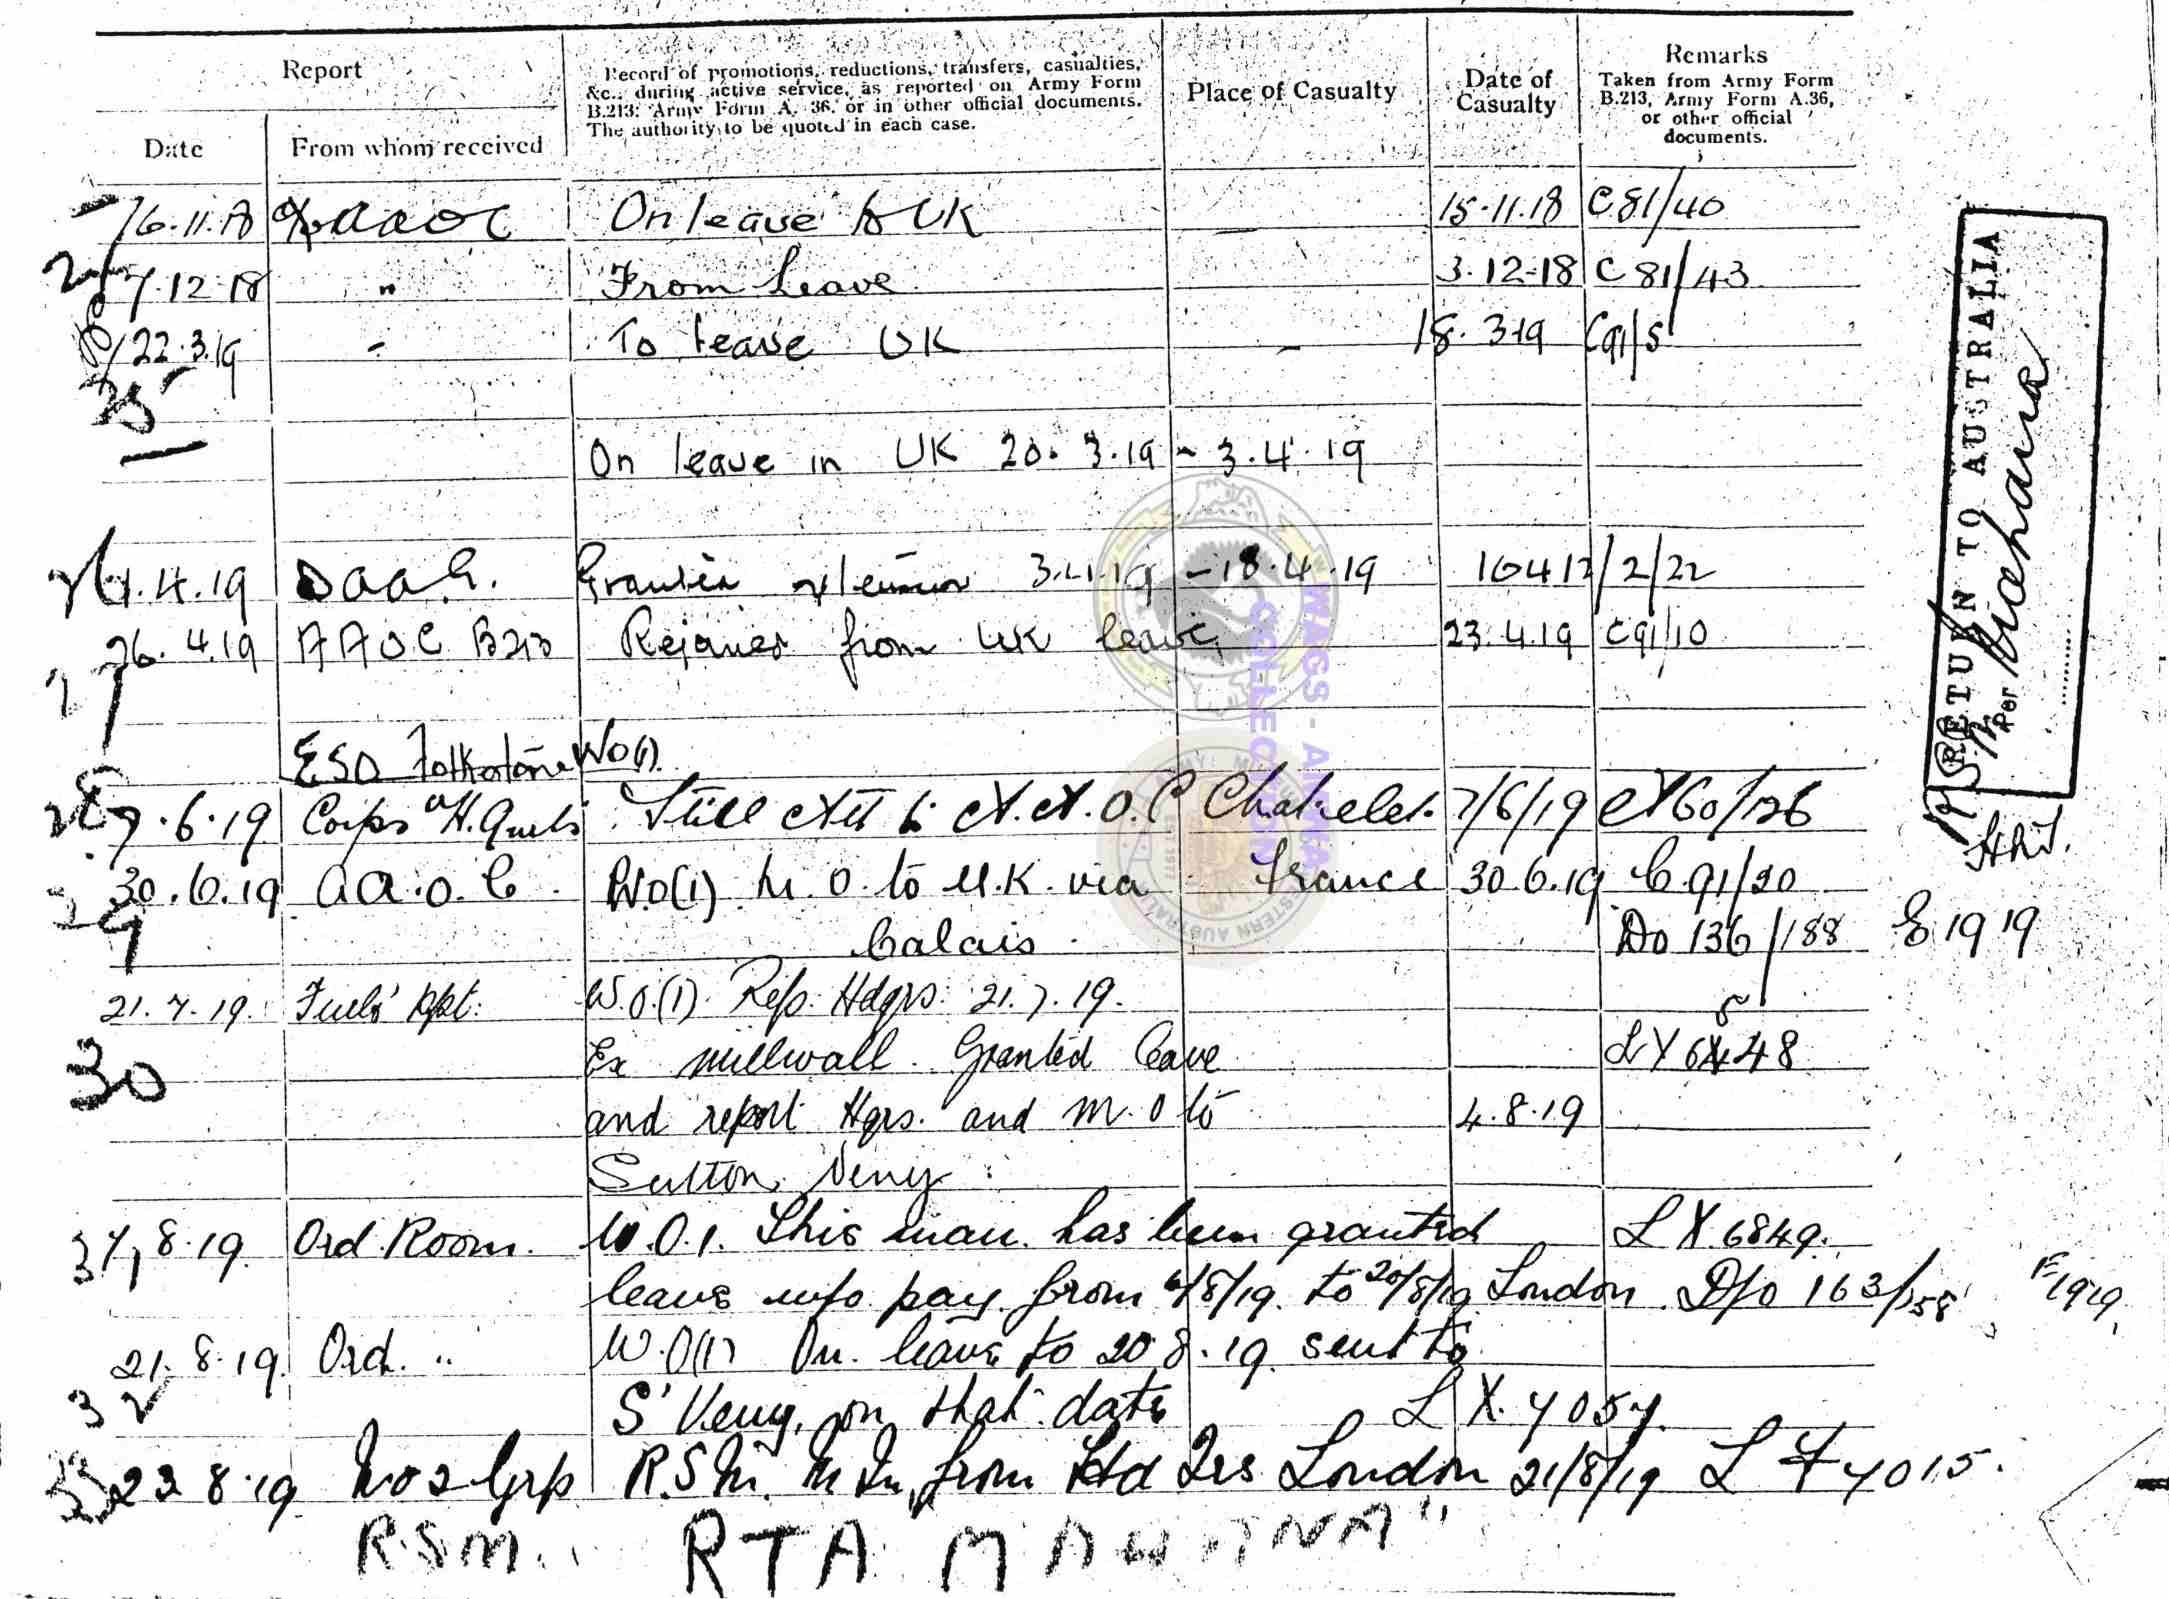 Report
Record of promotions, reductions, transfers, casualties,
&c., during active service, as reported on Army Form
B.213, Army Form A. 36, or in other official documents.
The authority to be quoted in each case.
Place of Casualty
Date of
Casualty
Remarks
Taken from Army Form
B.213, Army Form A.36,
or other official
documents.
Date
From whom received
16.11.18 AAOC On leave to UK 15.11.18 C81/40
7.12.18 " From leave 3.12.18 C 81/43
22.3.19 To leave UK 18.3.19 C91/5
25
On leave in UK 20.3.19 - 3.4.19
26
.4.19 DAAG. 3.4.19 - 18.4.19 10412/2/22
26.4.19 AAOC B213 Rejoined from UK leave 23.4.19 C91/10
27
ESO Folkestone WO(1)
28
7.6.19 Corps H.Qrs Still att to A.A.O.C 7/6/19 60/126
30.6.19 AA.O.C. W.O(1) M.O. to U.K. via France 30.6.19 C.91/20
29
Calais. Do 136/188 E 1919
21.7.19. W.O.(1). Rep. Hdqrs. 21.7.19.
Ex Millwall. Granted leave
30
and report Hqrs. and M.O to 4.8.19
Sutton Veny.
31
7.8.19 Ord. Room. W.O.1. This man has been granted L X.6849.
leave w/o pay from 6/8/19. to 20/8/19 London. D/O 163/ F1919
21.8.19. Ord. " W.O(1) On leave to 20.8.19. sent to
32
S' Veny, on that date L X.7057.
33
23 8.19 No 2 Grp R.S.M. M In from Hd Qrs London 21/8/19 L 7015.
R.S.M. RTA
RETURN TO AUSTRALIA
Per
WAGS - ANWA
COLLECTION